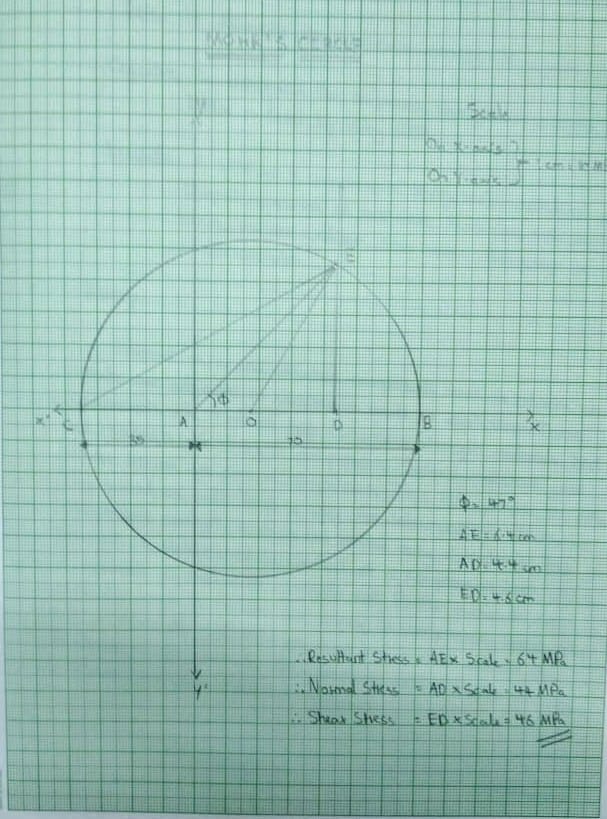 MOHR'S CIRCLE
Y
Scale
On X-axis
On Y-axis } 1cm =
E
φ
X' C A O D B X
35 70
φ = 47°
AE = 6.4 cm
AD = 4.4 cm
ED = 4.6 cm
∴ Resultant Stress = AE x Scale = 64 MPa
∴ Normal Stress = AD x Scale = 44 MPa
∴ Shear Stress = ED x Scale = 46 MPa
Y'